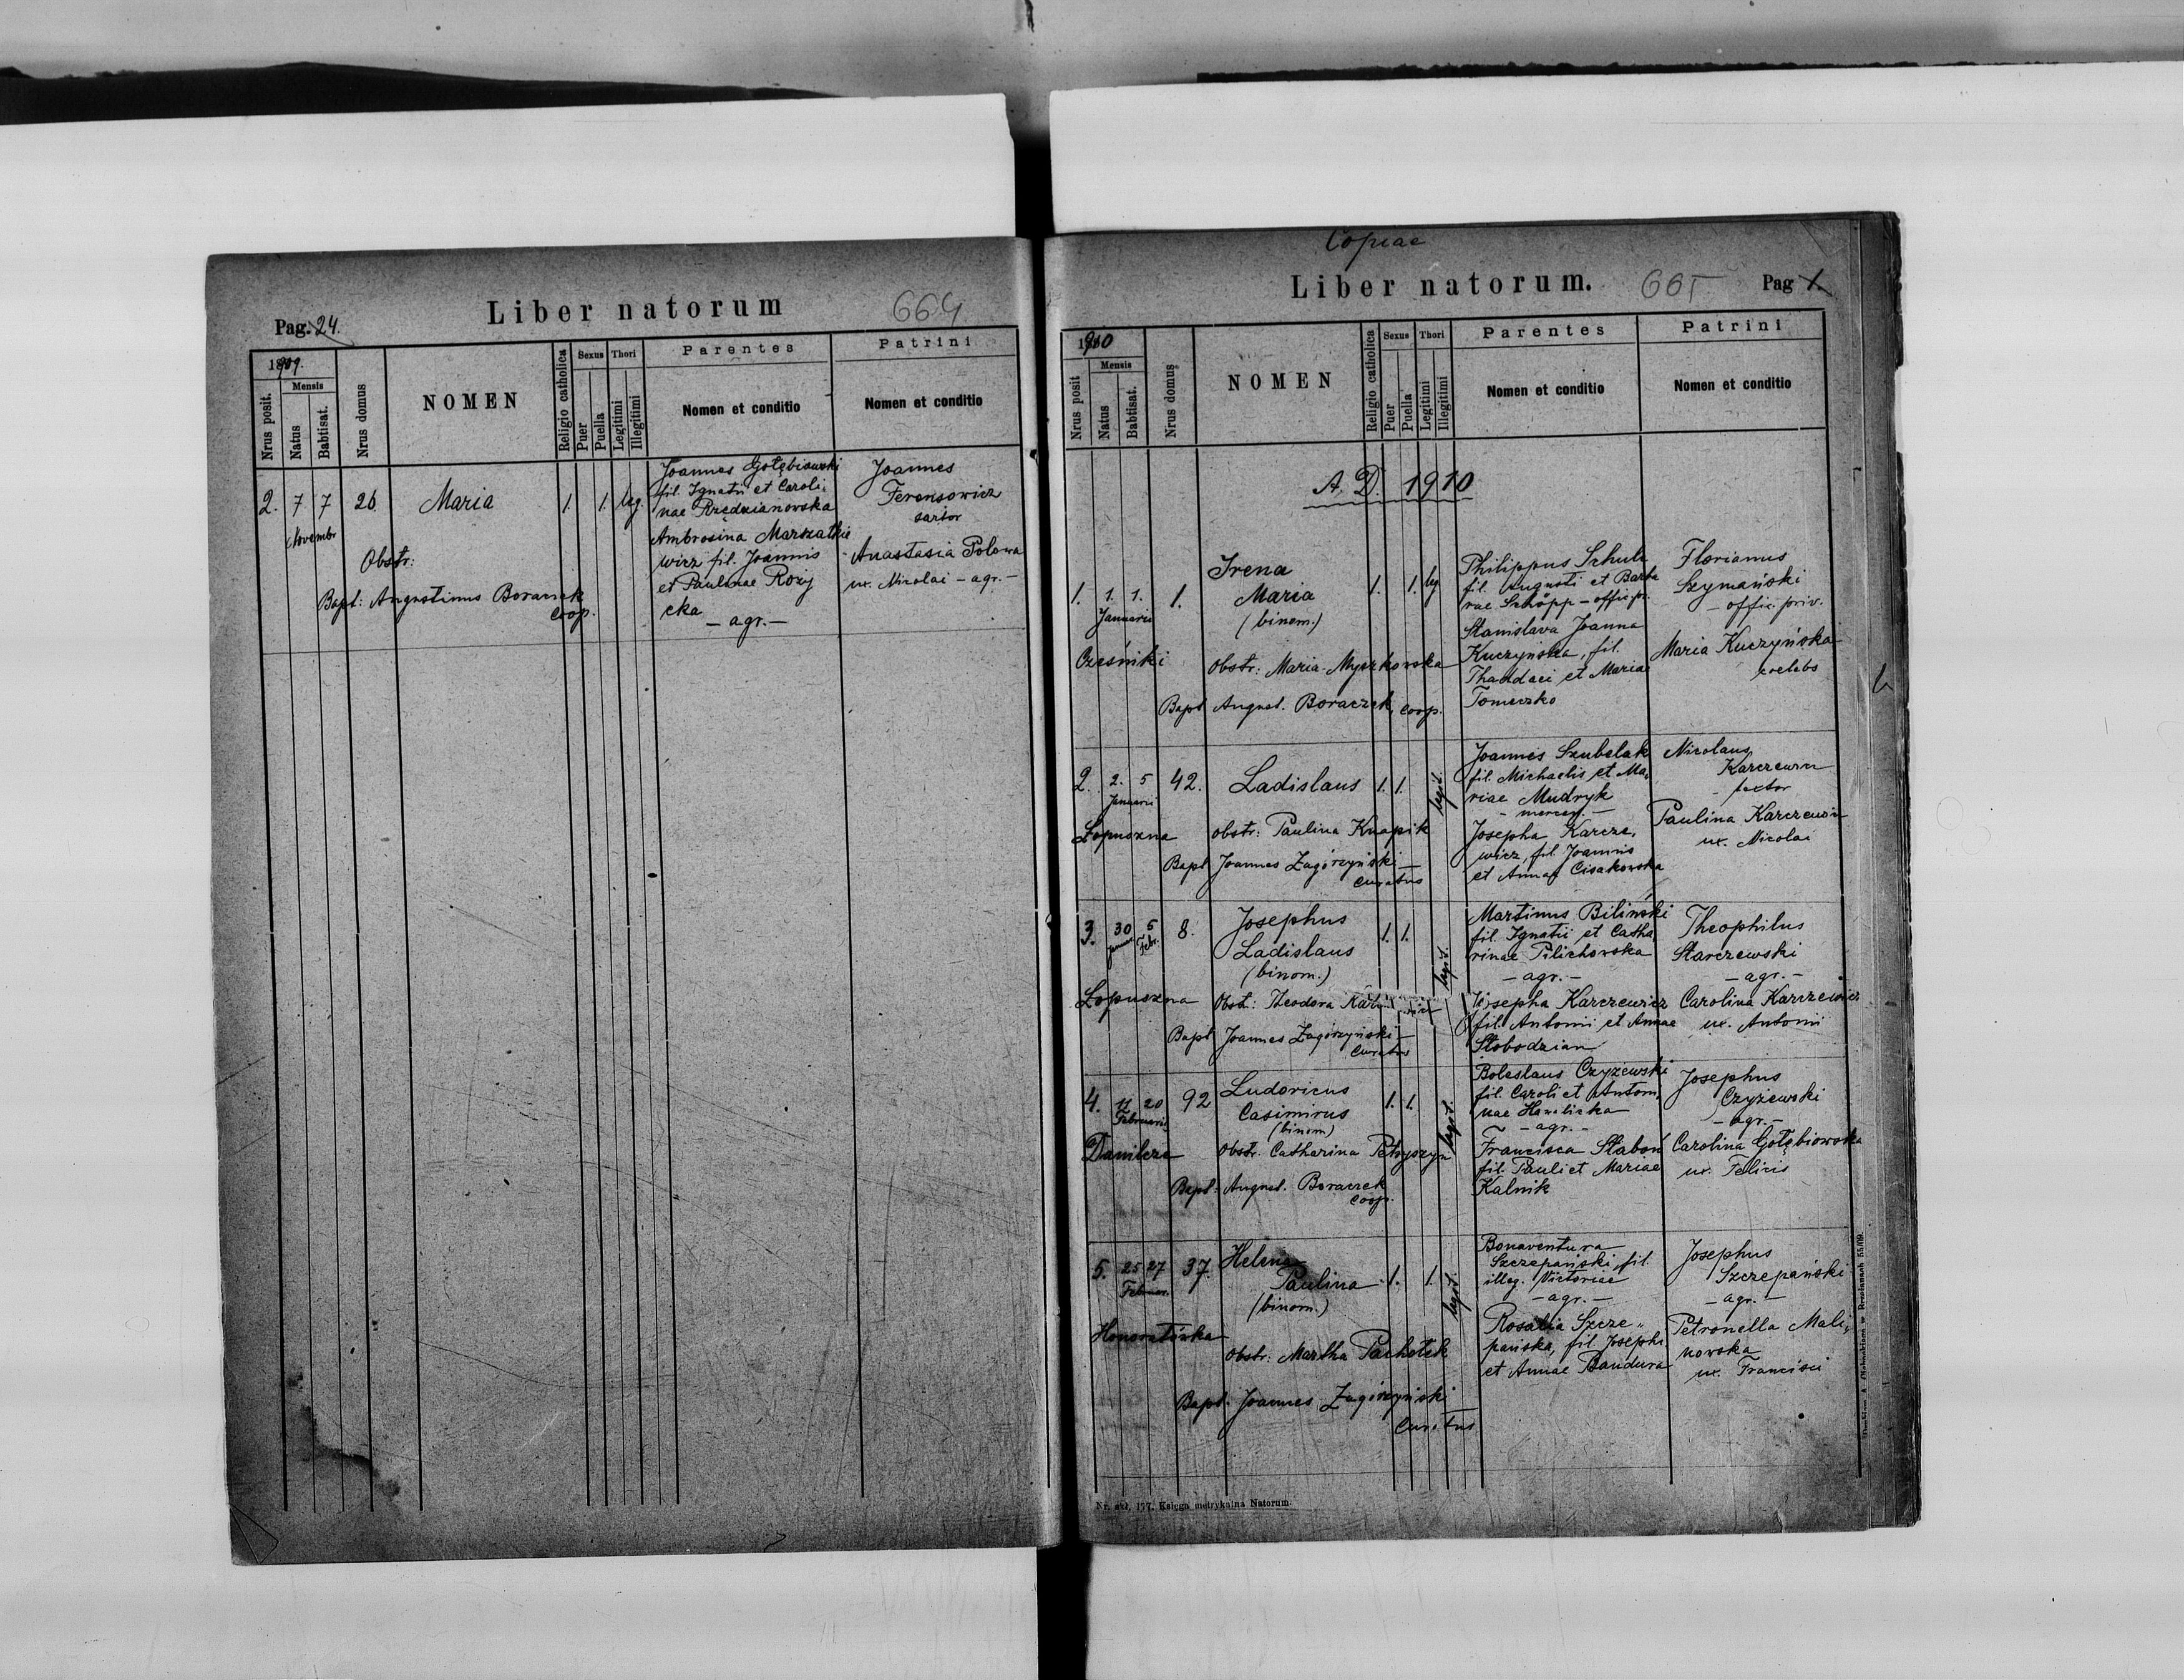 Pag. 24.
Liber natorum
664
1909.
Nrus posit.
Mensis
Natus
Babtisat.
Nrus domus
NOMEN
Religio catholica
Sexus
Puer
Puella
Thori
Legitimi
Illegitimi
Parentes
Nomen et conditio
Patrini
Nomen et conditio
2. 7 7 26. Maria 1. 1. leg.
Novembr.
Obstr:
Bapt: Augustinus Boraczek
coop.
Joannes Gołębiowski
fil. Ignatii et Caroli-
nae Rzędzianowska
Ambrosina Marszałkie
wicz fil. Joannis
et Paulinae Roży
cka
- agr. -
Joannes
Ferensowicz
sartor
Anastasia Polowa
ux. Nicolai - agr. -
Copiae
Liber natorum.
665
Pag 1.
1910
Nrus posit
Mensis
Natus
Babtisat.
Nrus domus
NOMEN
Religio catholica
Sexus
Puer
Puella
Thori
Legitimi
Illegitimi
Parentes
Nomen et conditio
Patrini
Nomen et conditio
A. D. 1910
1. 1. 1. 1. Irena
Maria 1. 1. leg
Januarii
(binom.)
Cześniki
Obstr: Maria Myszkowska
Bapt August. Boraczek, coop.
Philippus Schulz
fil. Augusti et Barba
rae Schöpp - offic. pr.
Stanislava Joanna
Kuczyńska, fil.
Thaddaei et Mariae
Tomeczko
Florianus
Szymański
- offic. priv.
Maria Kuczyńska
coelebs
2. 2. 5 42. Ladislaus 1. 1. legit.
Januarii
Łopuszna
obstr: Paulina Knapik
Bapt Joannes Zagórzyński -
curatus
Joannes Szubelak
fil. Michaelis et Ma-
riae Mudryk
- mercen. -
Josepha Karcze-
wicz, fil. Joannis
et Annae Cisakowska
Nicolaus
Paulina Karczewin
ux. Nicolai
3. 30 5 8. Josephus
Januar Febr.
Ladislaus 1. 1. legit.
(binom.)
Łopuszna
Obst.: Theodora
Bapt Joannes Zagórzyński -
curatus
Martinus Biliński
fil. Ignatii et Catha-
rinae Pilichowska
- agr. -
Josepha Karczewicz
fil. Antonii et Annae
Słobodzian
Theophilus
Starczewski
- agr. -
Carolina Karczewicz
ux. Antonii
4. 12 20 92 Ludovicus
Februarii
Casimirus 1. 1. legit.
(binom)
Danilcze
Obstr. Catharina Petryszyn
Bapt: August. Boraczek
coop.
Boleslaus Czyżewski
fil. Caroli et Anton-
nae Hawlicka
- agr. -
Francisca Słaboń
fil. Pauli et Mariae
Kalnik
Josephus
Czyżewski
- agr. -
Carolina Gołębiowska
ux. Felicis
5. 25 27 37. Helena
Februar.
Paulina 1. 1. legit.
(binom.)
Honoratówka
Obstr: Martha Pachotek
Bapt. Joannes Zagórzyński
Curatus
Bonaventura
Szczepański, fil.
illeg. Victoriae
- agr. -
Rosalia Szcze-
pańska, fil. Josephi
et Annae Bandura
Josephus
Szczepański
- agr. -
Petronella Mali-
nowska
ux. Francisci
Księga metrykalna Natorum.